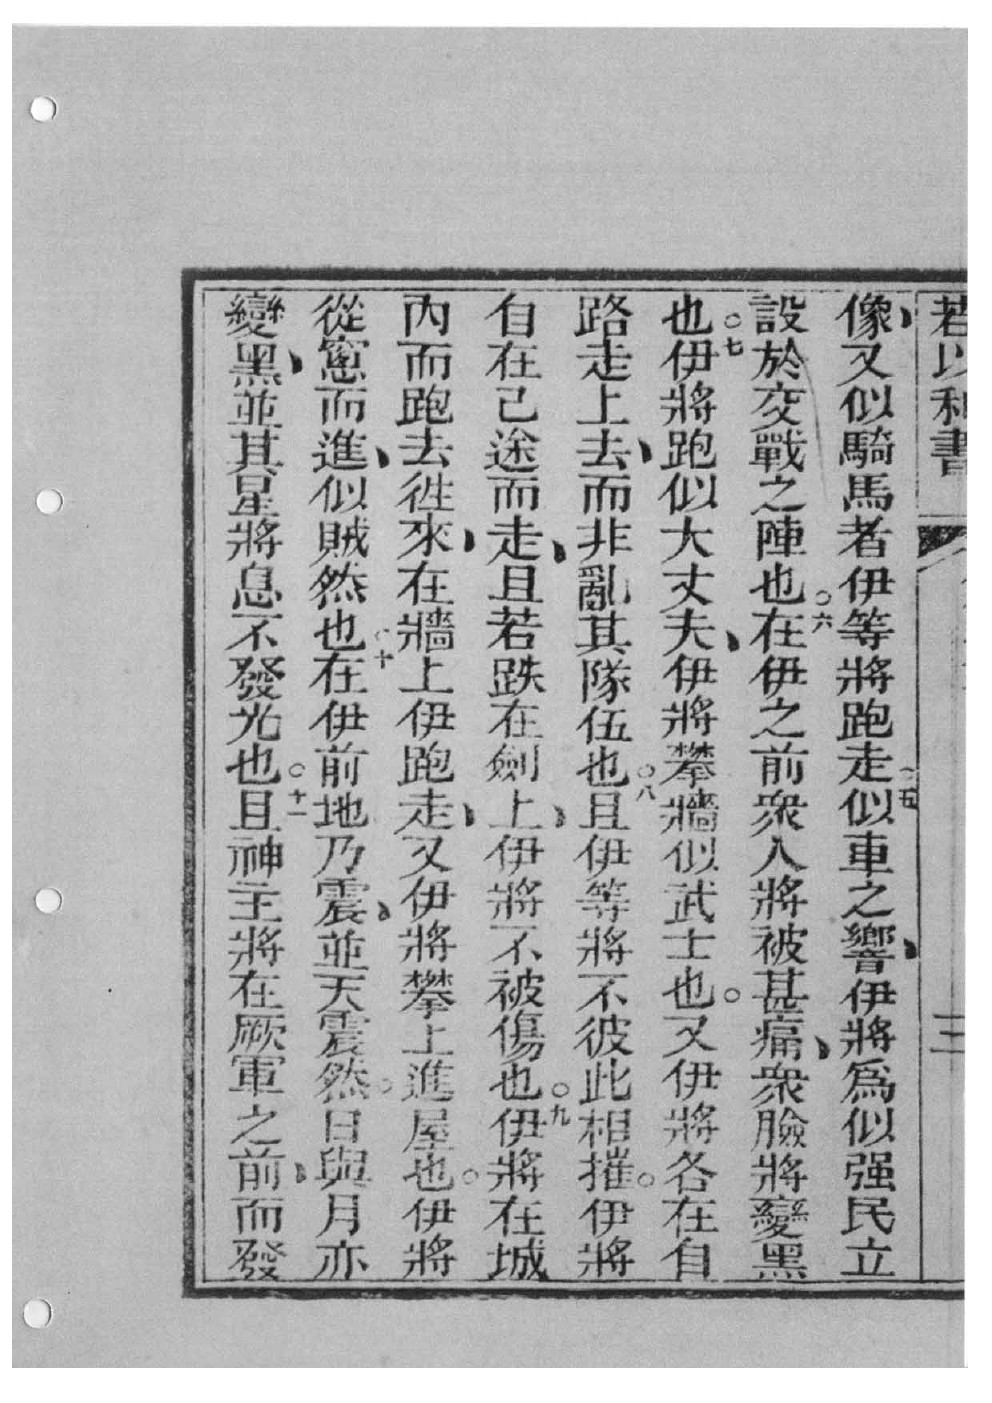 若以利書 三
像、又似騎馬者伊等將跑走○五似車之響、伊將爲似强民立
設於交戰之陣也○六在伊之前衆人將被甚痛、衆臉將變黑
也○七伊將跑似大丈夫、伊將攀牆似武士也○又伊將各在自
路走上去、而非亂其隊伍也○八且伊等將不彼此相摧○伊將
自在己途而走、且若跌在劍上、伊將不被傷也○九伊將在城
內而跑去徃來、在牆上伊跑走、又伊將攀上進屋也○伊將
從窻而進、似賊然也○十在伊前地乃震、並天震然○日與月亦
變黑、並其星將息不發光也○十一且神主將在厥軍之前、而發